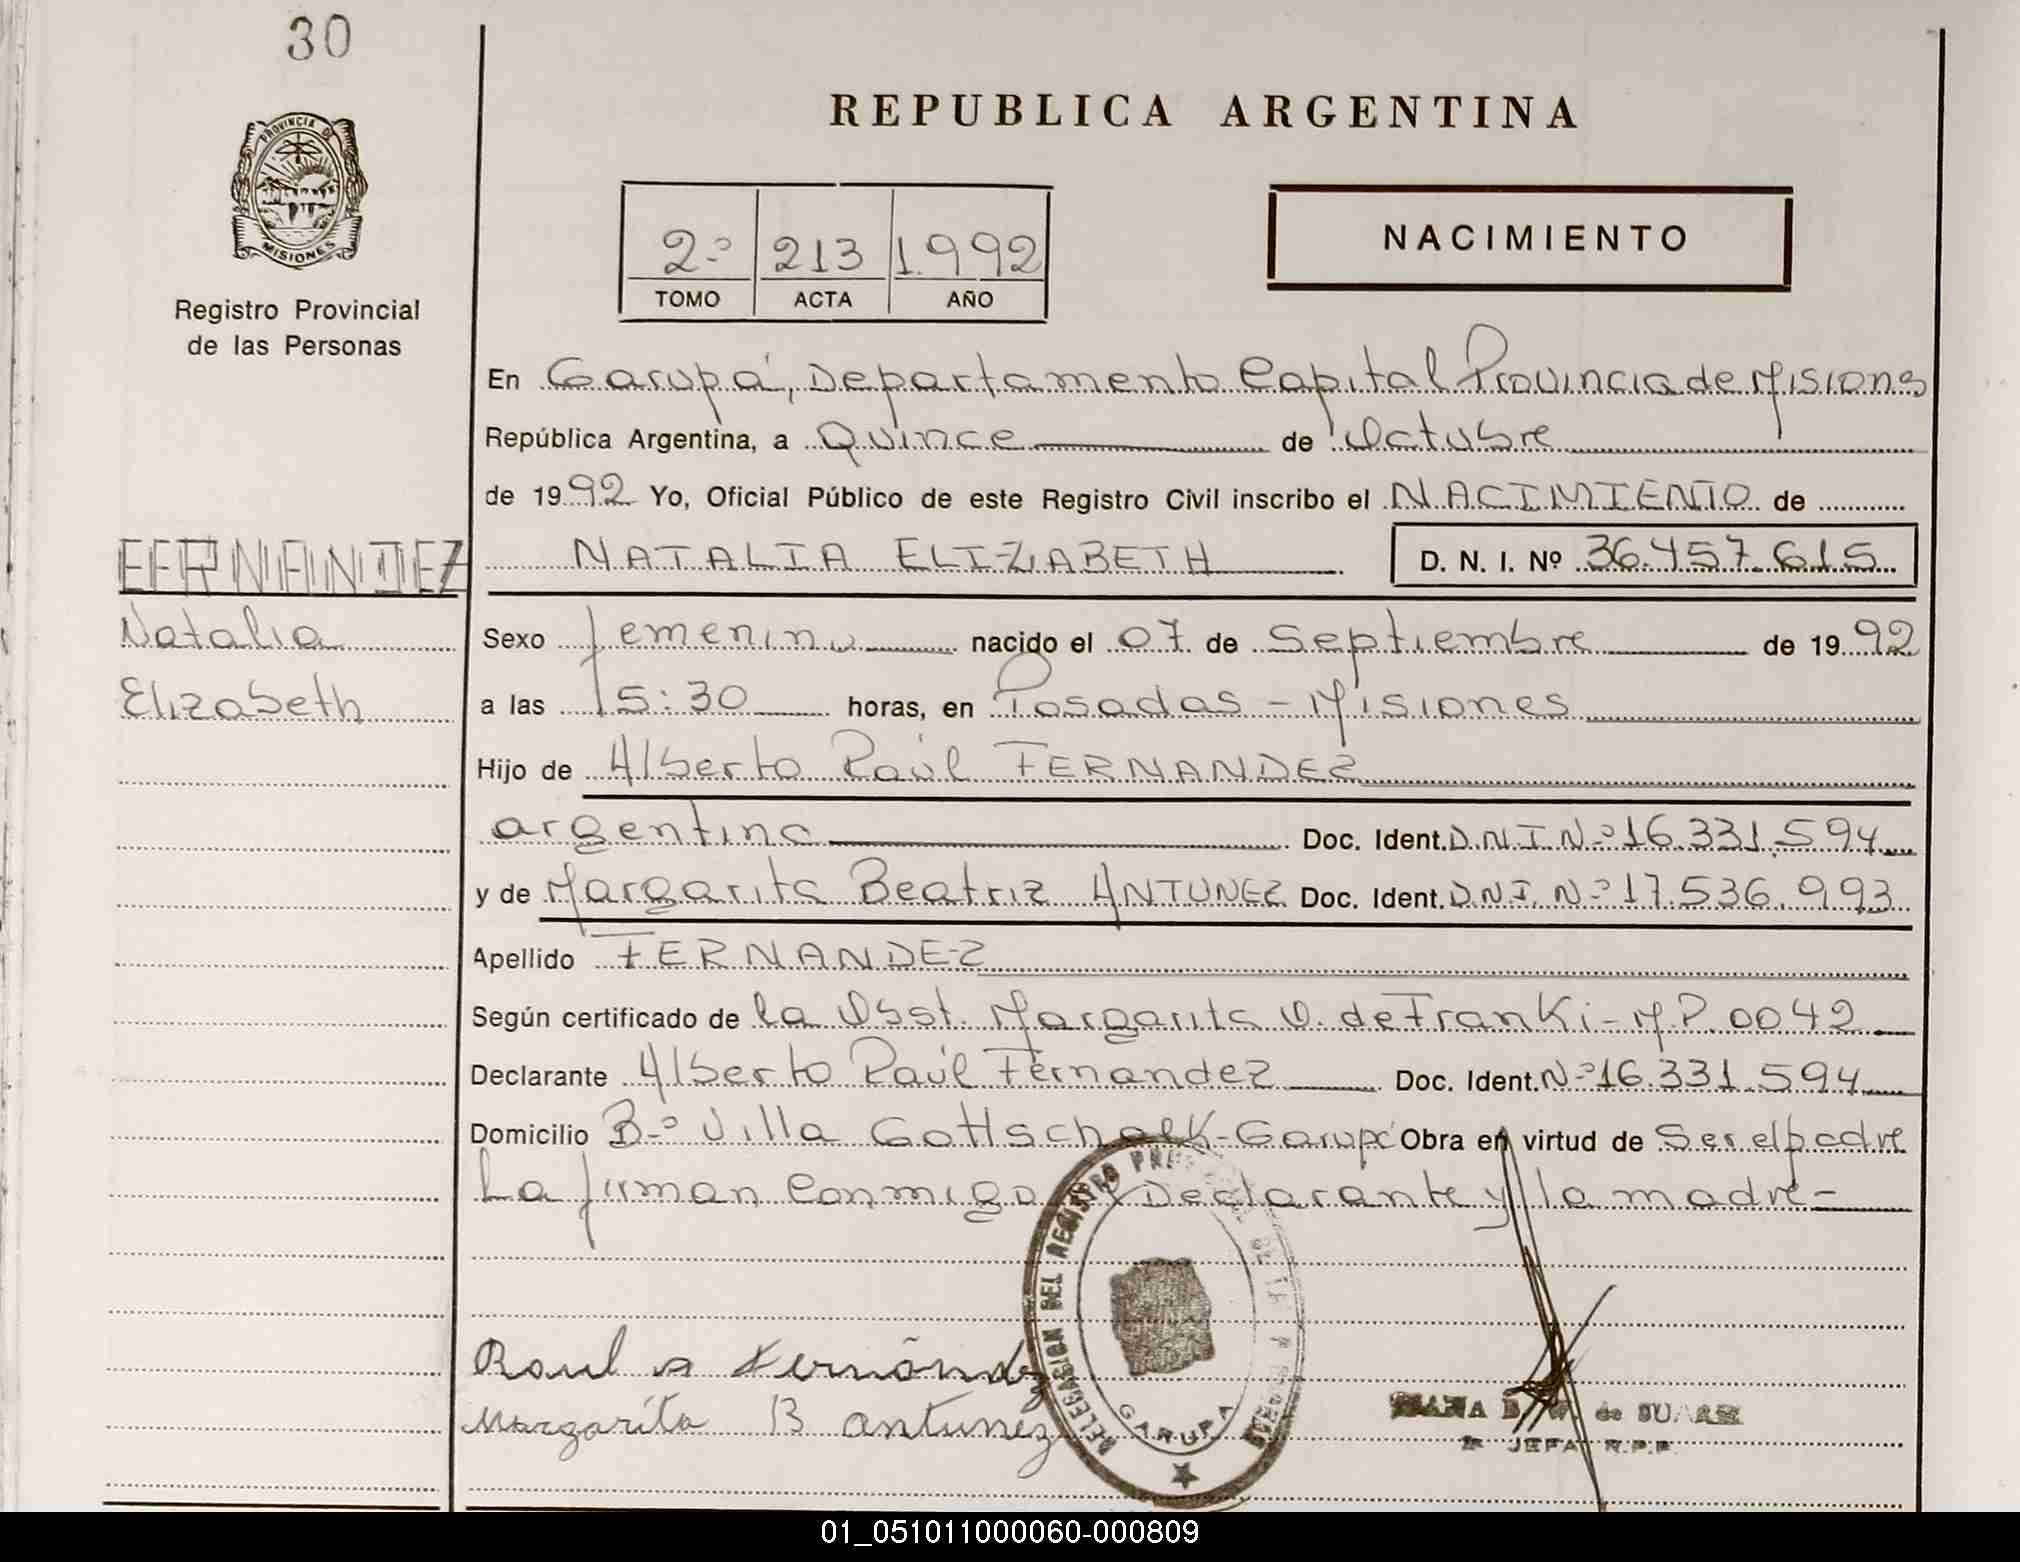 30
REPUBLICA ARGENTINA
PROVINCIA D
MISIONES
Registro Provincial
de las Personas
2º 213 1.992
TOMO ACTA AÑO
NACIMIENTO
En Garupá, Departamento Capital Provincia de Misiones
República Argentina, a Quince de Octubre
de 1992 Yo, Oficial Público de este Registro Civil inscribo el NACIMIENTO de
FERNANDEZ
NATALIA ELIZABETH D. N. I. Nº 36.457.615
Natalia
Elizabeth
Sexo femenino nacido el 07 de Septiembre de 1992
a las 15:30 horas, en Posadas - Misiones
Hijo de Alberto Raúl FERNANDEZ
argentino Doc. Ident. D.N.I. Nº 16.331.594
y de Margarita Beatriz ANTUNEZ Doc. Ident. D.N.I. Nº 17.536.993
Apellido FERNANDEZ
Según certificado de la Obst. Margarita O. de Franki - M.P. 0042
Declarante Alberto Raúl Fernandez Doc. Ident. Nº 16.331.594
Domicilio Bº Villa Gottschalk - Garupá Obra en virtud de Ser el padre
La firman conmigo Declarante y la madre -
DELEGASION DEL REGISTRO
GARUPA
Raul A Fernández
Margarita B antunez
de SUAREZ
JEFA R.P.P.
01_051011000060-000809